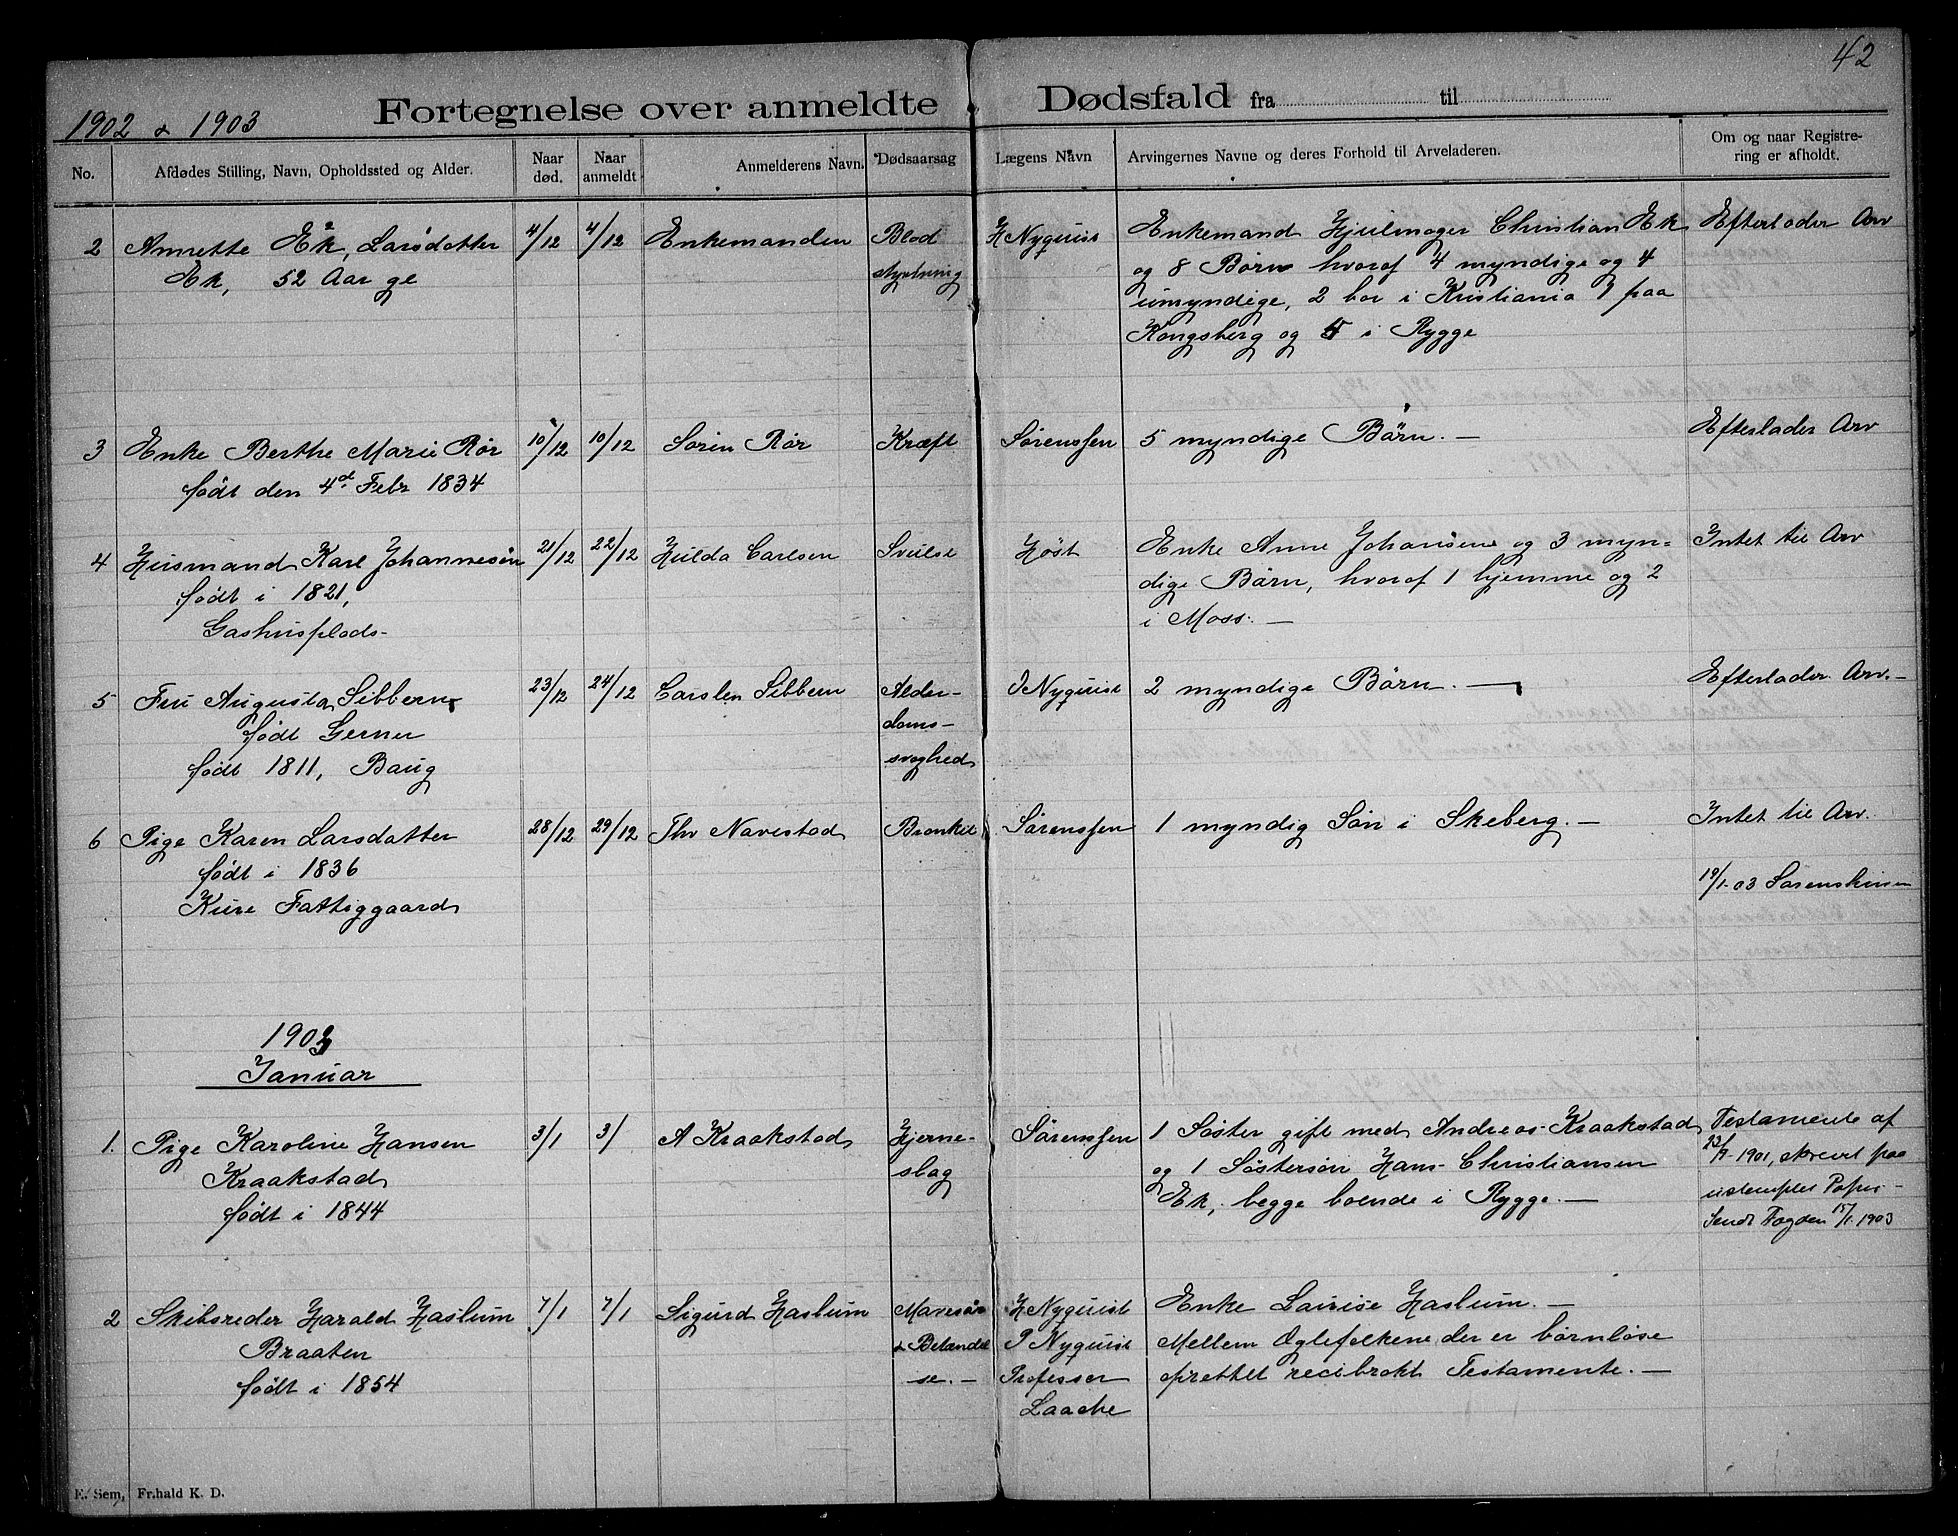 42
1902 & 1903
Fortegnelse over anmeldte Dødsfald fra til
No. Afdødes Stilling, Navn, Opholdssted og Alder. Naar død. Naar anmeldt Anmelderens Navn. Dødsaarsag Lægens Navn Arvingernes Navne og deres Forhold til Arveladeren. Om og naar Registrering er afholdt.
2 Annette Ek, Larsdatter 4/12 4/12 Enkemanden Blod H Nyquist Enkemand Hjulmager Christian Ek Efterlader Arv
Ek, 52 Aar ge styrtning og 8 Børn hvoraf 4 myndige og 4
umyndige, 2 bor i Kristiania 1 paa
Kongsberg og 5 i Rygge
3 Enke Berthe Marie Rør 10/12 10/12 Søren Rør Kræft Sørenssen 5 myndige Børn. — Efterlader Arv
født den 4d Febr 1834
4 Husmand Karl Johannesøn 21/12 22/12 Hulda Carlsen Svulst Høst Enke Anne Johansen og 3 myn= Intet til Arv
født i 1821, dige Børn, hvoraf 1 hjemme og 2
Gashusplads- i Moss. —
5 Fru Augusta Sibbern 23/12 24/12 Carsten Sibbern Alder- I Nyquist 2 myndige Børn. — Efterlader Arv. -
født Gerner doms-
født 1811, Baug svaghed
6 Pige Karen Larsdatter 28/12 29/12 Thv Navestad Bronkit Sørenssen 1 myndig Søn i Skeberg. — Intet til Arv.
født i 1836
Kure Fattiggaard 19/1-03 Sørenskriver
1903
Januar
1. Pige Karoline Hansen 3/1 3/ A Kraakstad Hjerne- Sørenssen 1 Søster gift med Andreas Kraakstad Testamente af
Kraakstad slag og 1 Søstersøn Hans Christiansen 1901, skrevet paa
født i 1844 Ek, begge boende i Rygge. — ustemplet Papir -
Sendt Fogden 15/1. 1903
2 Skibsreder Harald Haslum 7/1 7/1 Sigurd Haslum Mavesår H Nyquist Enke Louise Haslum. —
Braaten & Betændel P Nyquist Mellem Ægtefolkene der er barnløse
født i 1854 se. — Professor oprettet recibrokt Testamente. —
Laache
E. Sem, Fr.hald K. D.